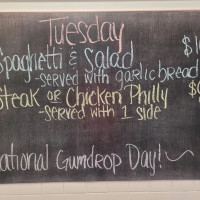 Tuesday
Spaghetti & Salad
-served with garlic bread
Steak or Chicken Philly
-served with 1 side
National Gumdrop Day!~